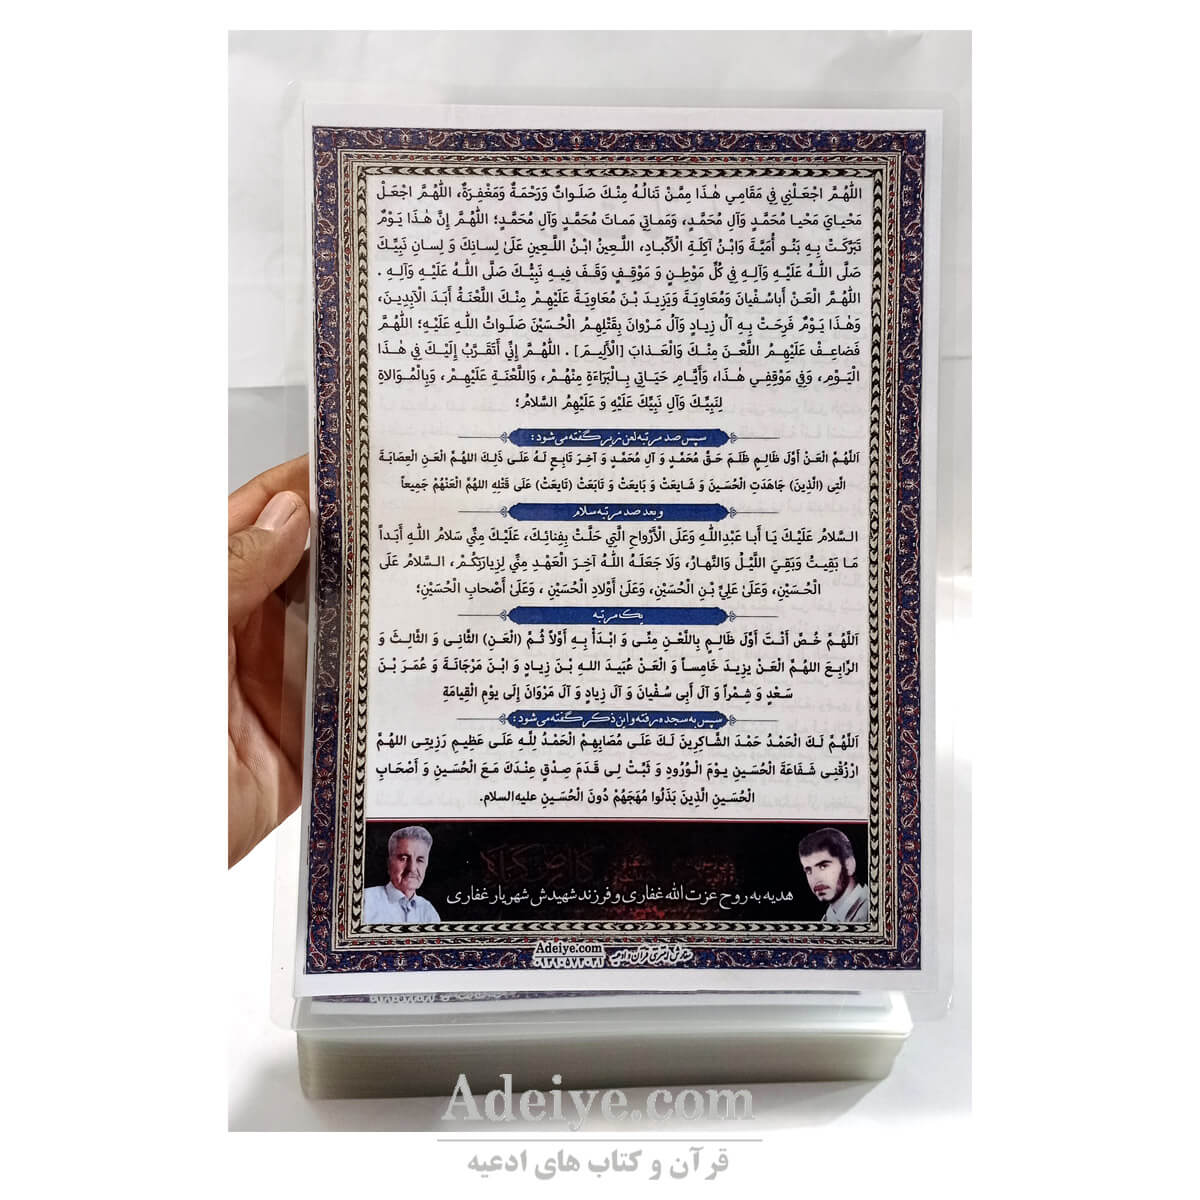 اللّٰهُمَّ اجْعَلْنِي فِي مَقامِي هٰذَا مِمَّنْ تَنالُهُ مِنْكَ صَلَواتٌ وَرَحْمَةٌ وَمَغْفِرَةٌ، اللّٰهُمَّ اجْعَلْ
مَحْيايَ مَحْيا مُحَمَّدٍ وَآلِ مُحَمَّدٍ، وَمَماتِي مَماتَ مُحَمَّدٍ وَآلِ مُحَمَّدٍ؛ اللّٰهُمَّ إِنَّ هٰذَا يَوْمٌ
تَبَرَّكَتْ بِهِ بَنُو أُمَيَّةَ وَابْنُ آكِلَةِ الْأَكْبادِ، اللَّعِينُ ابْنُ اللَّعِينِ عَلَىٰ لِسانِكَ وَ لِسانِ نَبِيِّكَ
صَلَّى اللّٰهُ عَلَيْهِ وَآلِهِ فِي كُلِّ مَوْطِنٍ وَ مَوْقِفٍ وَقَفَ فِيهِ نَبِيُّكَ صَلَّى اللّٰهُ عَلَيْهِ وَآلِهِ .
اللّٰهُمَّ الْعَنْ أَباسُفْيانَ وَمُعَاوِيَةَ وَيَزِيدَ بْنَ مُعَاوِيَةَ عَلَيْهِمْ مِنْكَ اللَّعْنَةُ أَبَدَ الْآبِدِينَ،
وَهٰذَا يَوْمٌ فَرِحَتْ بِهِ آلُ زِيادٍ وَآلُ مَرْوانَ بِقَتْلِهِمُ الْحُسَيْنَ صَلَواتُ اللّٰهِ عَلَيْهِ؛ اللّٰهُمَّ
فَضاعِفْ عَلَيْهِمُ اللَّعْنَ مِنْكَ وَالْعَذابَ [الْأَلِيمَ] . اللّٰهُمَّ إِنِّي أَتَقَرَّبُ إِلَيْكَ فِي هٰذَا
الْيَوْمِ، وَفِي مَوْقِفِي هٰذَا، وَأَيَّامِ حَيَاتِي بِالْبَراءَةِ مِنْهُمْ، وَاللَّعْنَةِ عَلَيْهِمْ، وَبِالْمُوَالاةِ
لِنَبِيِّكَ وَآلِ نَبِيِّكَ عَلَيْهِ وَ عَلَيْهِمُ السَّلامُ؛
سپس صد مرتبه لعن زیر گفته می‌شود:
اَللّهُمَّ الْعَنْ أَوَّلَ ظَالِمٍ ظَلَمَ حَقَّ مُحَمَّدٍ وَ آلِ مُحَمَّدٍ وَ آخِرَ تَابِعٍ لَهُ عَلَى ذَلِكَ اللهُمَّ الْعَنِ الْعِصَابَةَ
الَّتِي (الَّذِينَ) جَاهَدَتِ الْحُسَيْنَ وَ شَايَعَتْ وَ بَايَعَتْ وَ تَابَعَتْ (تَايَعَتْ) عَلَى قَتْلِهِ اللهُمَّ الْعَنْهُمْ جَمِيعاً
و بعد صد مرتبه سلام
السَّلامُ عَلَيْكَ يَا أَبا عَبْدِاللّٰهِ وَعَلَى الْأَرْواحِ الَّتِي حَلَّتْ بِفِنائِكَ، عَلَيْكَ مِنِّي سَلامُ اللّٰهِ أَبَداً
مَا بَقِيتُ وَبَقِيَ اللَّيْلُ وَالنَّهارُ، وَلَا جَعَلَهُ اللّٰهُ آخِرَ الْعَهْدِ مِنِّي لِزِيارَتِكُمْ، السَّلامُ عَلَى
الْحُسَيْنِ، وَعَلَىٰ عَلِيِّ بْنِ الْحُسَيْنِ، وَعَلَىٰ أَوْلادِ الْحُسَيْنِ ، وَعَلَىٰ أَصْحابِ الْحُسَيْنِ؛
یک مرتبه
اَللَّهُمَّ خُصَّ أَنْتَ أَوَّلَ ظَالِمٍ بِاللَّعْنِ مِنِّى وَ ابْدَأْ بِهِ أَوَّلاً ثُمَّ (الْعَنِ) الثَّانِى وَ الثَّالِثَ وَ
الرَّابِعَ اللهُمَّ الْعَنْ يَزِيدَ خَامِساً وَ الْعَنْ عُبَيْدَ اللهِ بْنَ زِيَادٍ وَ ابْنَ مَرْجَانَةَ وَ عُمَرَ بْنَ
سَعْدٍ وَ شِمْراً وَ آلَ أَبِى سُفْيَانَ وَ آلَ زِيَادٍ وَ آلَ مَرْوَانَ إِلَى يَوْمِ الْقِيَامَةِ
سپس به سجده رفته و این ذکر گفته می‌شود:
اَللَّهُمَّ لَكَ الْحَمْدُ حَمْدَ الشَّاكِرِينَ لَكَ عَلَى مُصَابِهِمْ الْحَمْدُ لِلَّهِ عَلَى عَظِيمِ رَزِيتِى اللهُمَّ
ارْزُقْنِى شَفَاعَةَ الْحُسَيْنِ يَوْمَ الْوُرُودِ وَ ثَبِّتْ لِى قَدَمَ صِدْقٍ عِنْدَكَ مَعَ الْحُسَيْنِ وَ أَصْحَابِ
الْحُسَيْنِ الَّذِينَ بَذَلُوا مُهَجَهُمْ دُونَ الْحُسَيْنِ علیه‌السلام.
هدیه به روح عزت الله غفاری و فرزند شهیدش شهریار غفاری
Adeiye.com
Adeiye.com
قرآن و کتاب های ادعیه